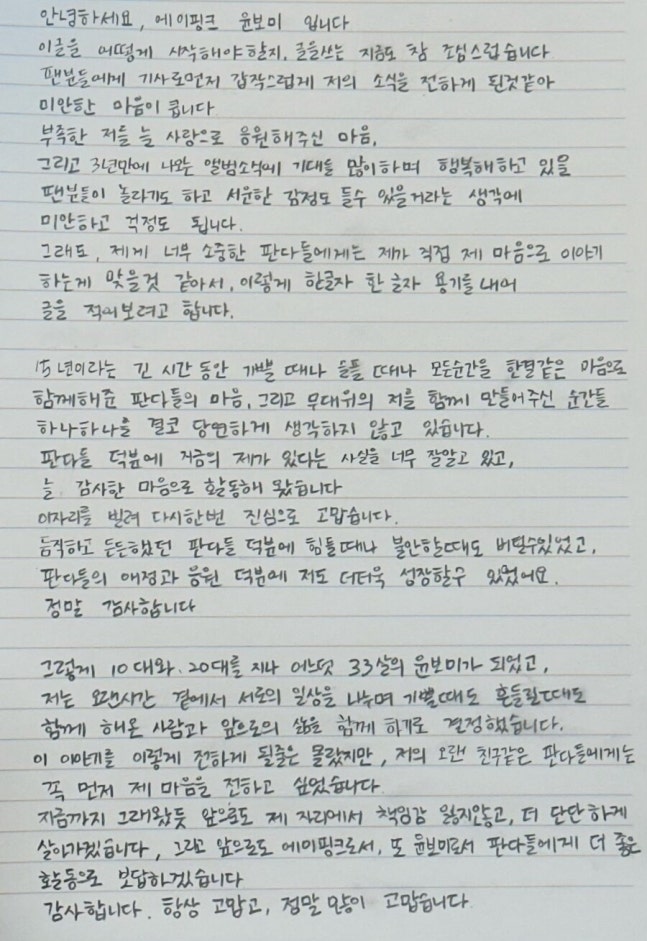 안녕하세요, 에이핑크 윤보미 입니다
이글을 어떻게 시작해야할지, 글을쓰는 지금도 참 조심스럽습니다
팬분들에게 기사로먼저 갑작스럽게 저의 소식을 전하게 된것같아
미안한 마음이 큽니다
부족한 저를 늘 사랑으로 응원해주신 마음,
그리고 3년만에 나오는 앨범소식에 기대를 많이하며 행복해하고 있을
팬분들이 놀라기도 하고 서운한 감정도 들수 있을거라는 생각에
미안하고 걱정도 됩니다.
그래도, 제게 너무 소중한 판다들에게는 제가 직접 제 마음으로 이야기
하는게 맞을것 같아서, 이렇게 한글자 한 글자 용기를 내어
글을 적어보려고 합니다.
15년이라는 긴 시간 동안 기쁠 때나 슬플 때나 모든순간을 한결같은 마음으로
함께해준 판다들의 마음, 그리고 무대위의 저를 함께 만들어주신 순간들
하나하나를 결코 당연하게 생각하지 않고 있습니다.
판다들 덕분에 지금의 제가 있다는 사실을 너무 잘알고 있고,
늘 감사한 마음으로 활동해 왔습니다
이자리를 빌려 다시한번 진심으로 고맙습니다.
듬직하고 든든했던 판다들 덕분에 힘들때나 불안할때도 버틸수있었고,
판다들의 애정과 응원 덕분에 저도 더더욱 성장할수 있었어요.
정말 감사합니다
그렇게 10대와 20대를 지나 어느덧 33살의 윤보미가 되었고,
저는 오랜시간 곁에서 서로의 일상을 나누며 기쁠때도 흔들릴때도
함께 해온 사람과 앞으로의 삶을 함께 하기로 결정했습니다.
이 이야기를 이렇게 전하게 될줄은 몰랐지만, 저의 오랜 친구같은 판다들에게는
꼭 먼저 제 마음을 전하고 싶었습니다
지금까지 그래왔듯 앞으로도 제 자리에서 책임감 잃지않고, 더 단단하게
살아가겠습니다, 그리고 앞으로도 에이핑크로서, 또 윤보미로서 판다들에게 더 좋은
활동으로 보답하겠습니다
감사합니다. 항상 고맙고, 정말 많이 고맙습니다.